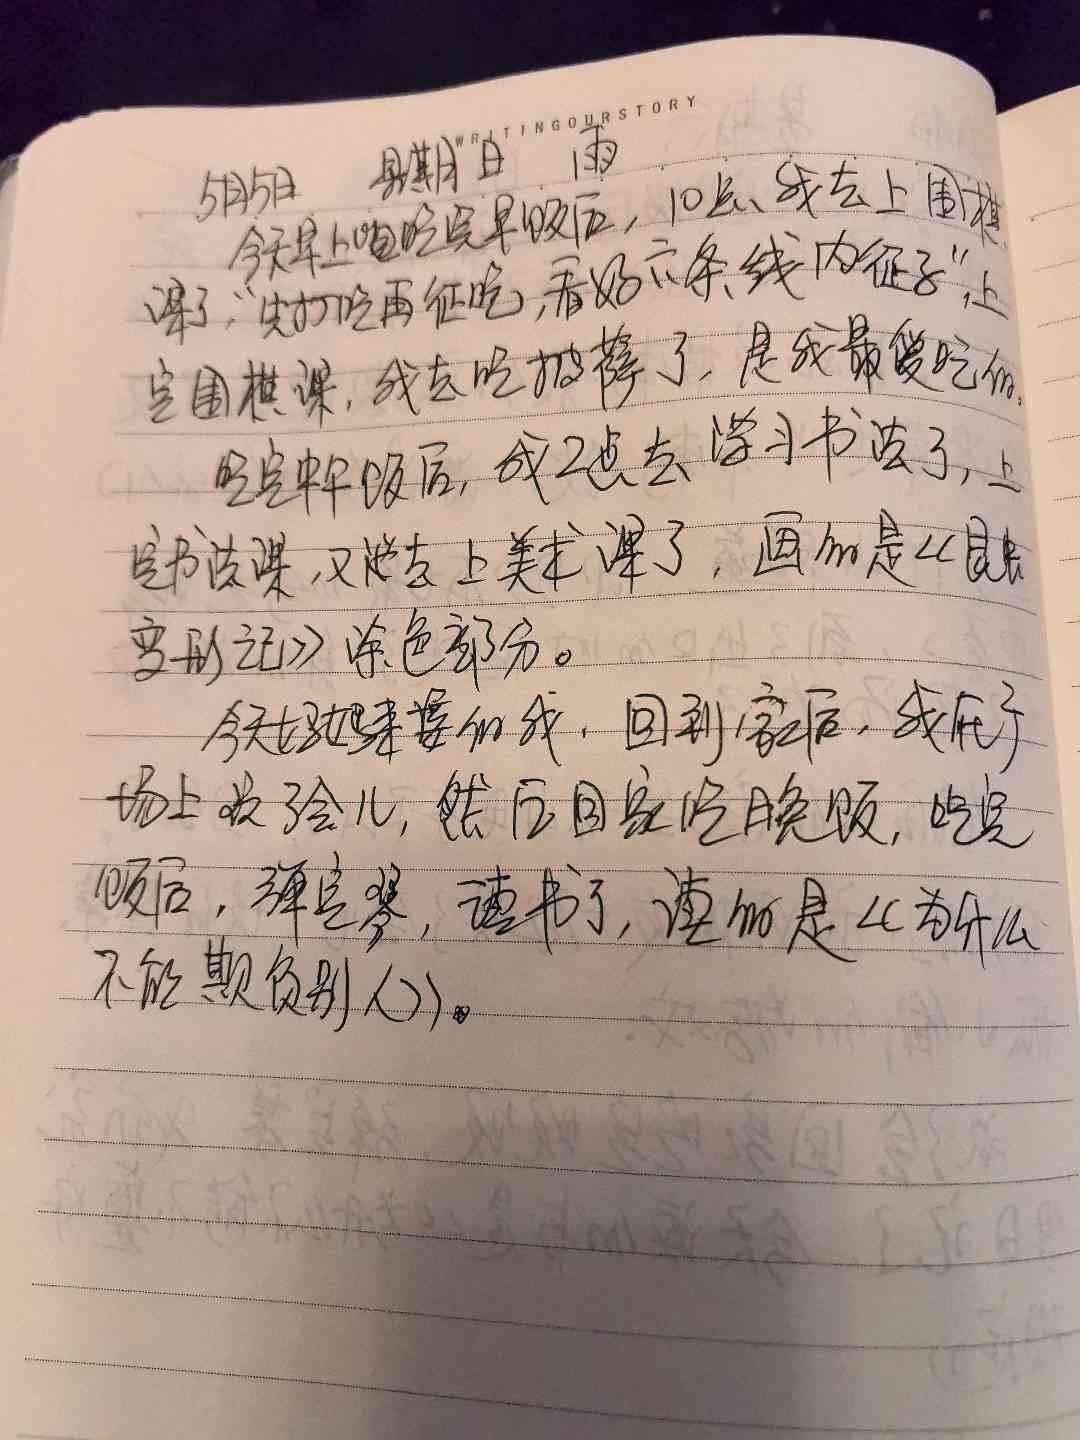 WRITINGOURSTORY
5月5日 星期日 雨
今天早上吃完早饭后，10点、我去上围棋
课了，“先打吃再征吃，看好六条线内征子”，上
完围棋课，我去吃披萨了，是我最爱吃的。
吃完中午饭后，我2点去学习书法了，上
完书法课，又去上美术课了，画的是《昆虫
变形记》涂色部分。
今天妈妈来接的我，回到家后，我在广
场上玩了会儿，然后回家吃晚饭，吃完
饭后，弹完琴，读书了，读的是《为什么
不能欺负别人》。